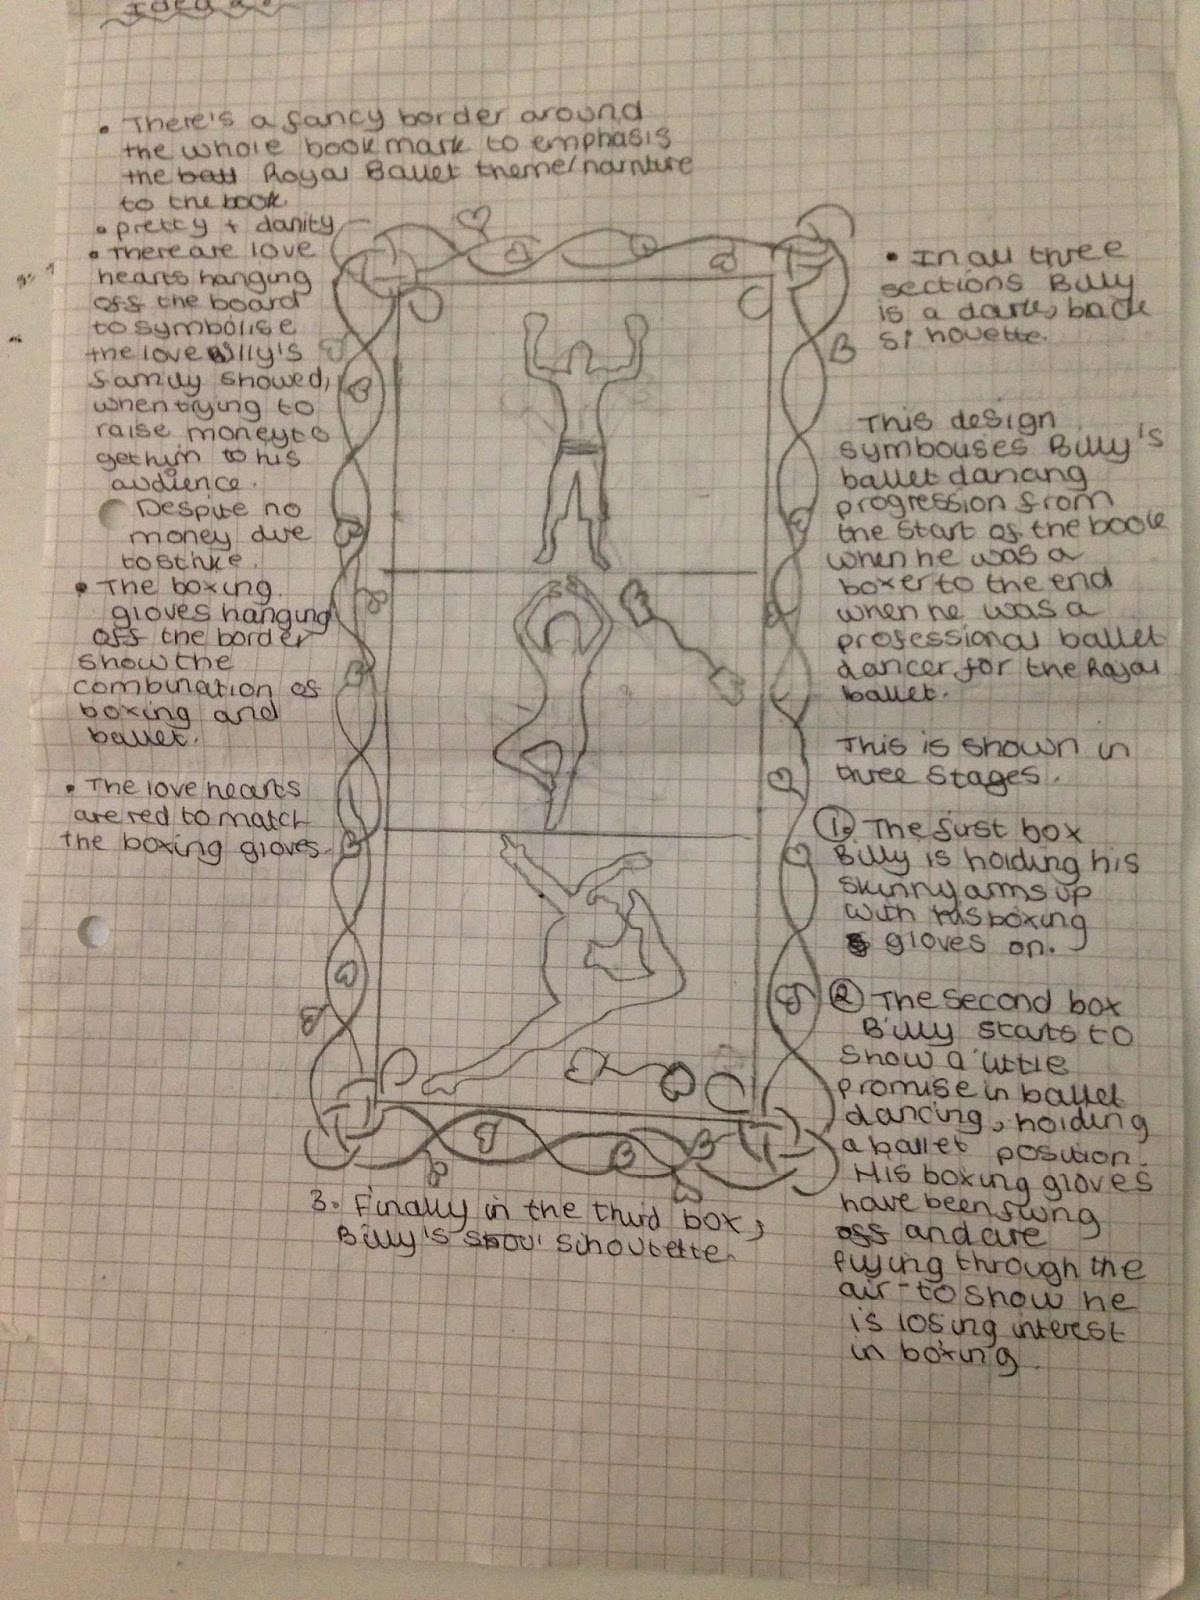 Idea 2.
• There's a fancy border around
the whole bookmark to emphasis
the Royal Ballet theme/narnture
to the book.
• pretty + danity
• There are love
hearts hanging
off the board
to symbolise
the love Billy's
family showed,
when trying to
raise money to
get him to his
audience.
Despite no
money due
to strike.
• The boxing
gloves hanging
off the border
show the
combination of
boxing and
ballet.
• The love hearts
are red to match
the boxing gloves.
• In all three
sections Billy
is a dark, back
sihouette.
This design
symbolises Billy's
ballet dancing
progression from
the start of the book
when he was a
boxer to the end
when he was a
professional ballet
dancer for the Royal
ballet.
This is shown in
three stages.
1. The first box
Billy is holding his
skinny arms up
with his boxing
gloves on.
2 The second box
Billy starts to
show a little
promise in ballet
dancing, holding
a ballet position.
His boxing gloves
have been flung
off and are
flying through the
air - to show he
is losing interest
in boxing.
3. Finally in the third box,
Billy's sihoutette.